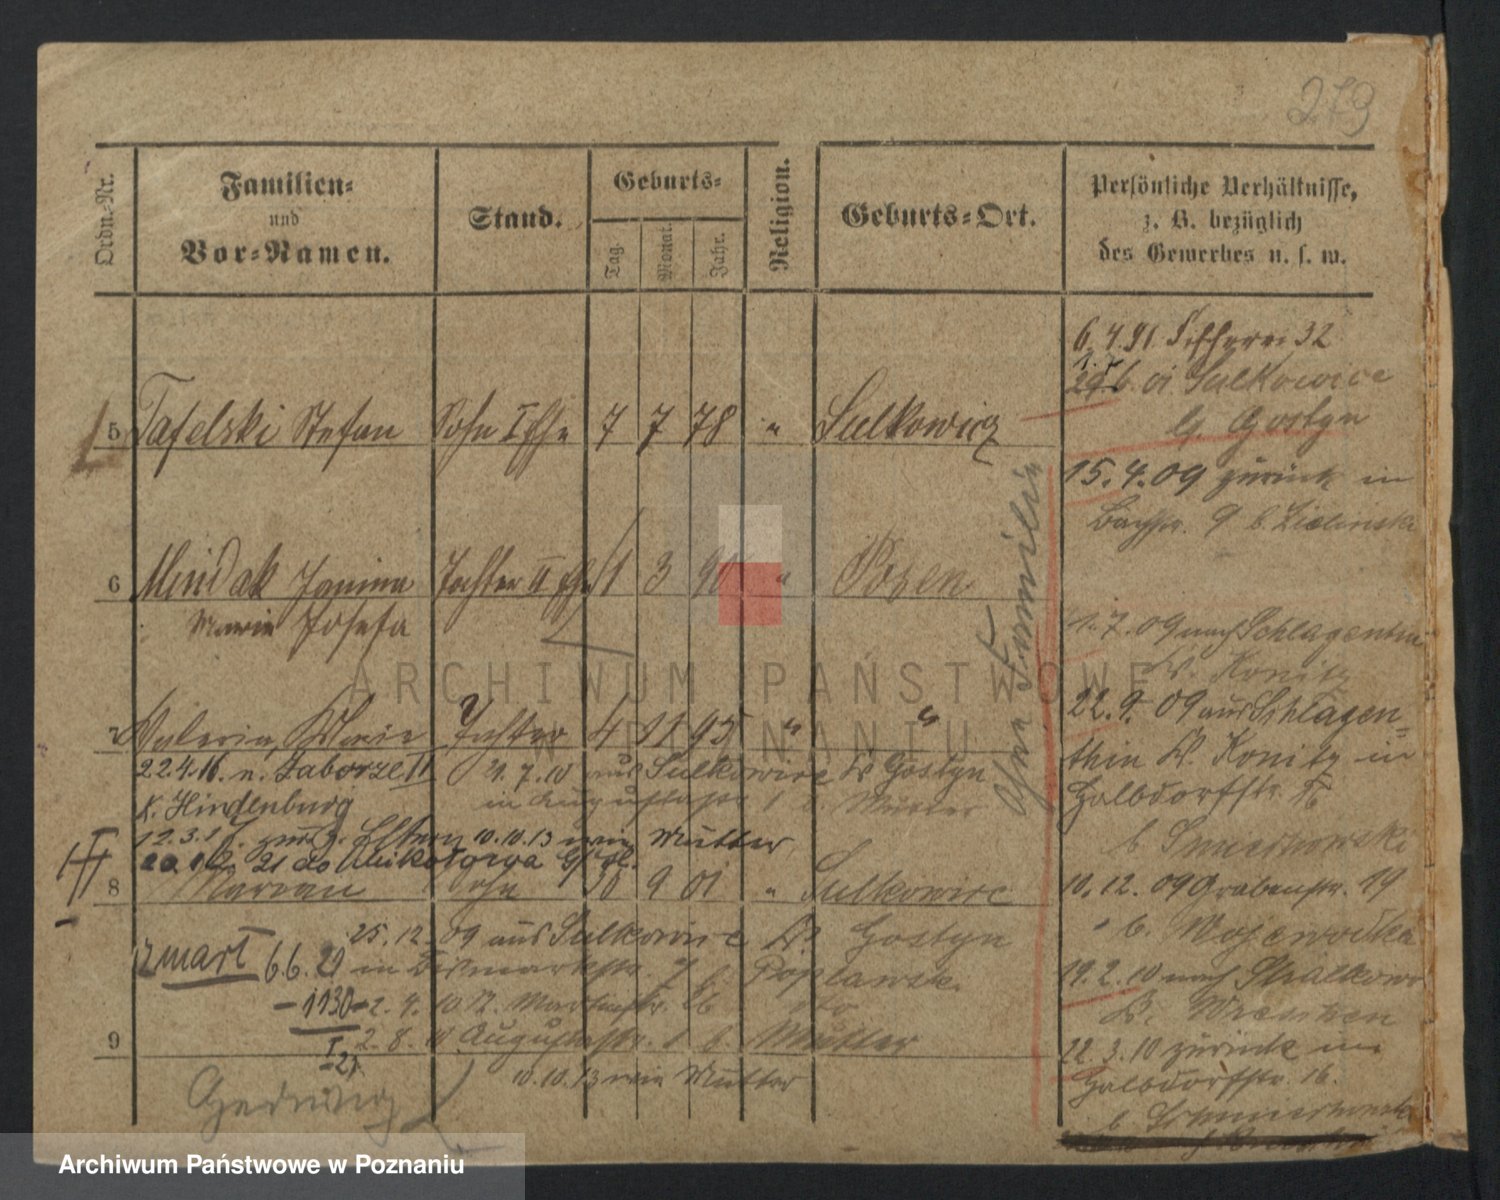 279
Ordn.-Nr.
Familien-
und
Vor-Namen.
Stand.
Geburts-
Tag.
Monat.
Jahr.
Religion.
Geburts-Ort.
Persönliche Verhältnisse,
z. B. bezüglich
des Gewerbes u. s. w.
5 Tafelski Stefan Sohn I Ehe 7 7 78 " Sulkowicz
6 Mindak Janina Tochter II Ehe 1 3 90 " Posen
Marie Josefa
7 Valeria, Marie Tochter 4 11 95 " "
22.4.16. n. Zaborze II 21.7.10 aus Sulkowice Kr Gostyn
K. Hindenburg in Augustastr 1 b. Mutter
12.3.17. zur. z. Eltern 10.10.13 wie Mutter
20.12.21 do
8 Maryan Sohn 30 9 01 " Sulkowice
25.12.09 aus Sulkowice Kr. Gostyn
zmarł 6.6.29 in Bismarckstr. 7 b. Poplawsk.
-1130- 2.4.10 Martinstr. 26 dto
2.8.10 Augustastr. 1 b. Mutter
9
10.10.13 wie Mutter
Hedwig
ohne Familie
6.4.91 Fischerei 32
in Sulkowice
Kr. Gostyn
15.4.09 zurück in
Bachstr. 9 b. Zielinska
1.7.09 nach Schlagentin
Kr. Konitz
22.9.09 aus Schlagen-
thin Kr. Konitz in
Halbdorfstr. 16
b. Smierzchowski
10.12.09 Grabenstr. 19
b. Wojewodka
19.2.10 nach Strzalkowo
Kr. Wreschen
22.3.10 zurück in
Halbdorfstr. 16.
ARCHIWUM PAŃSTWOWE
W POZNANIU
Archiwum Państwowe w Poznaniu